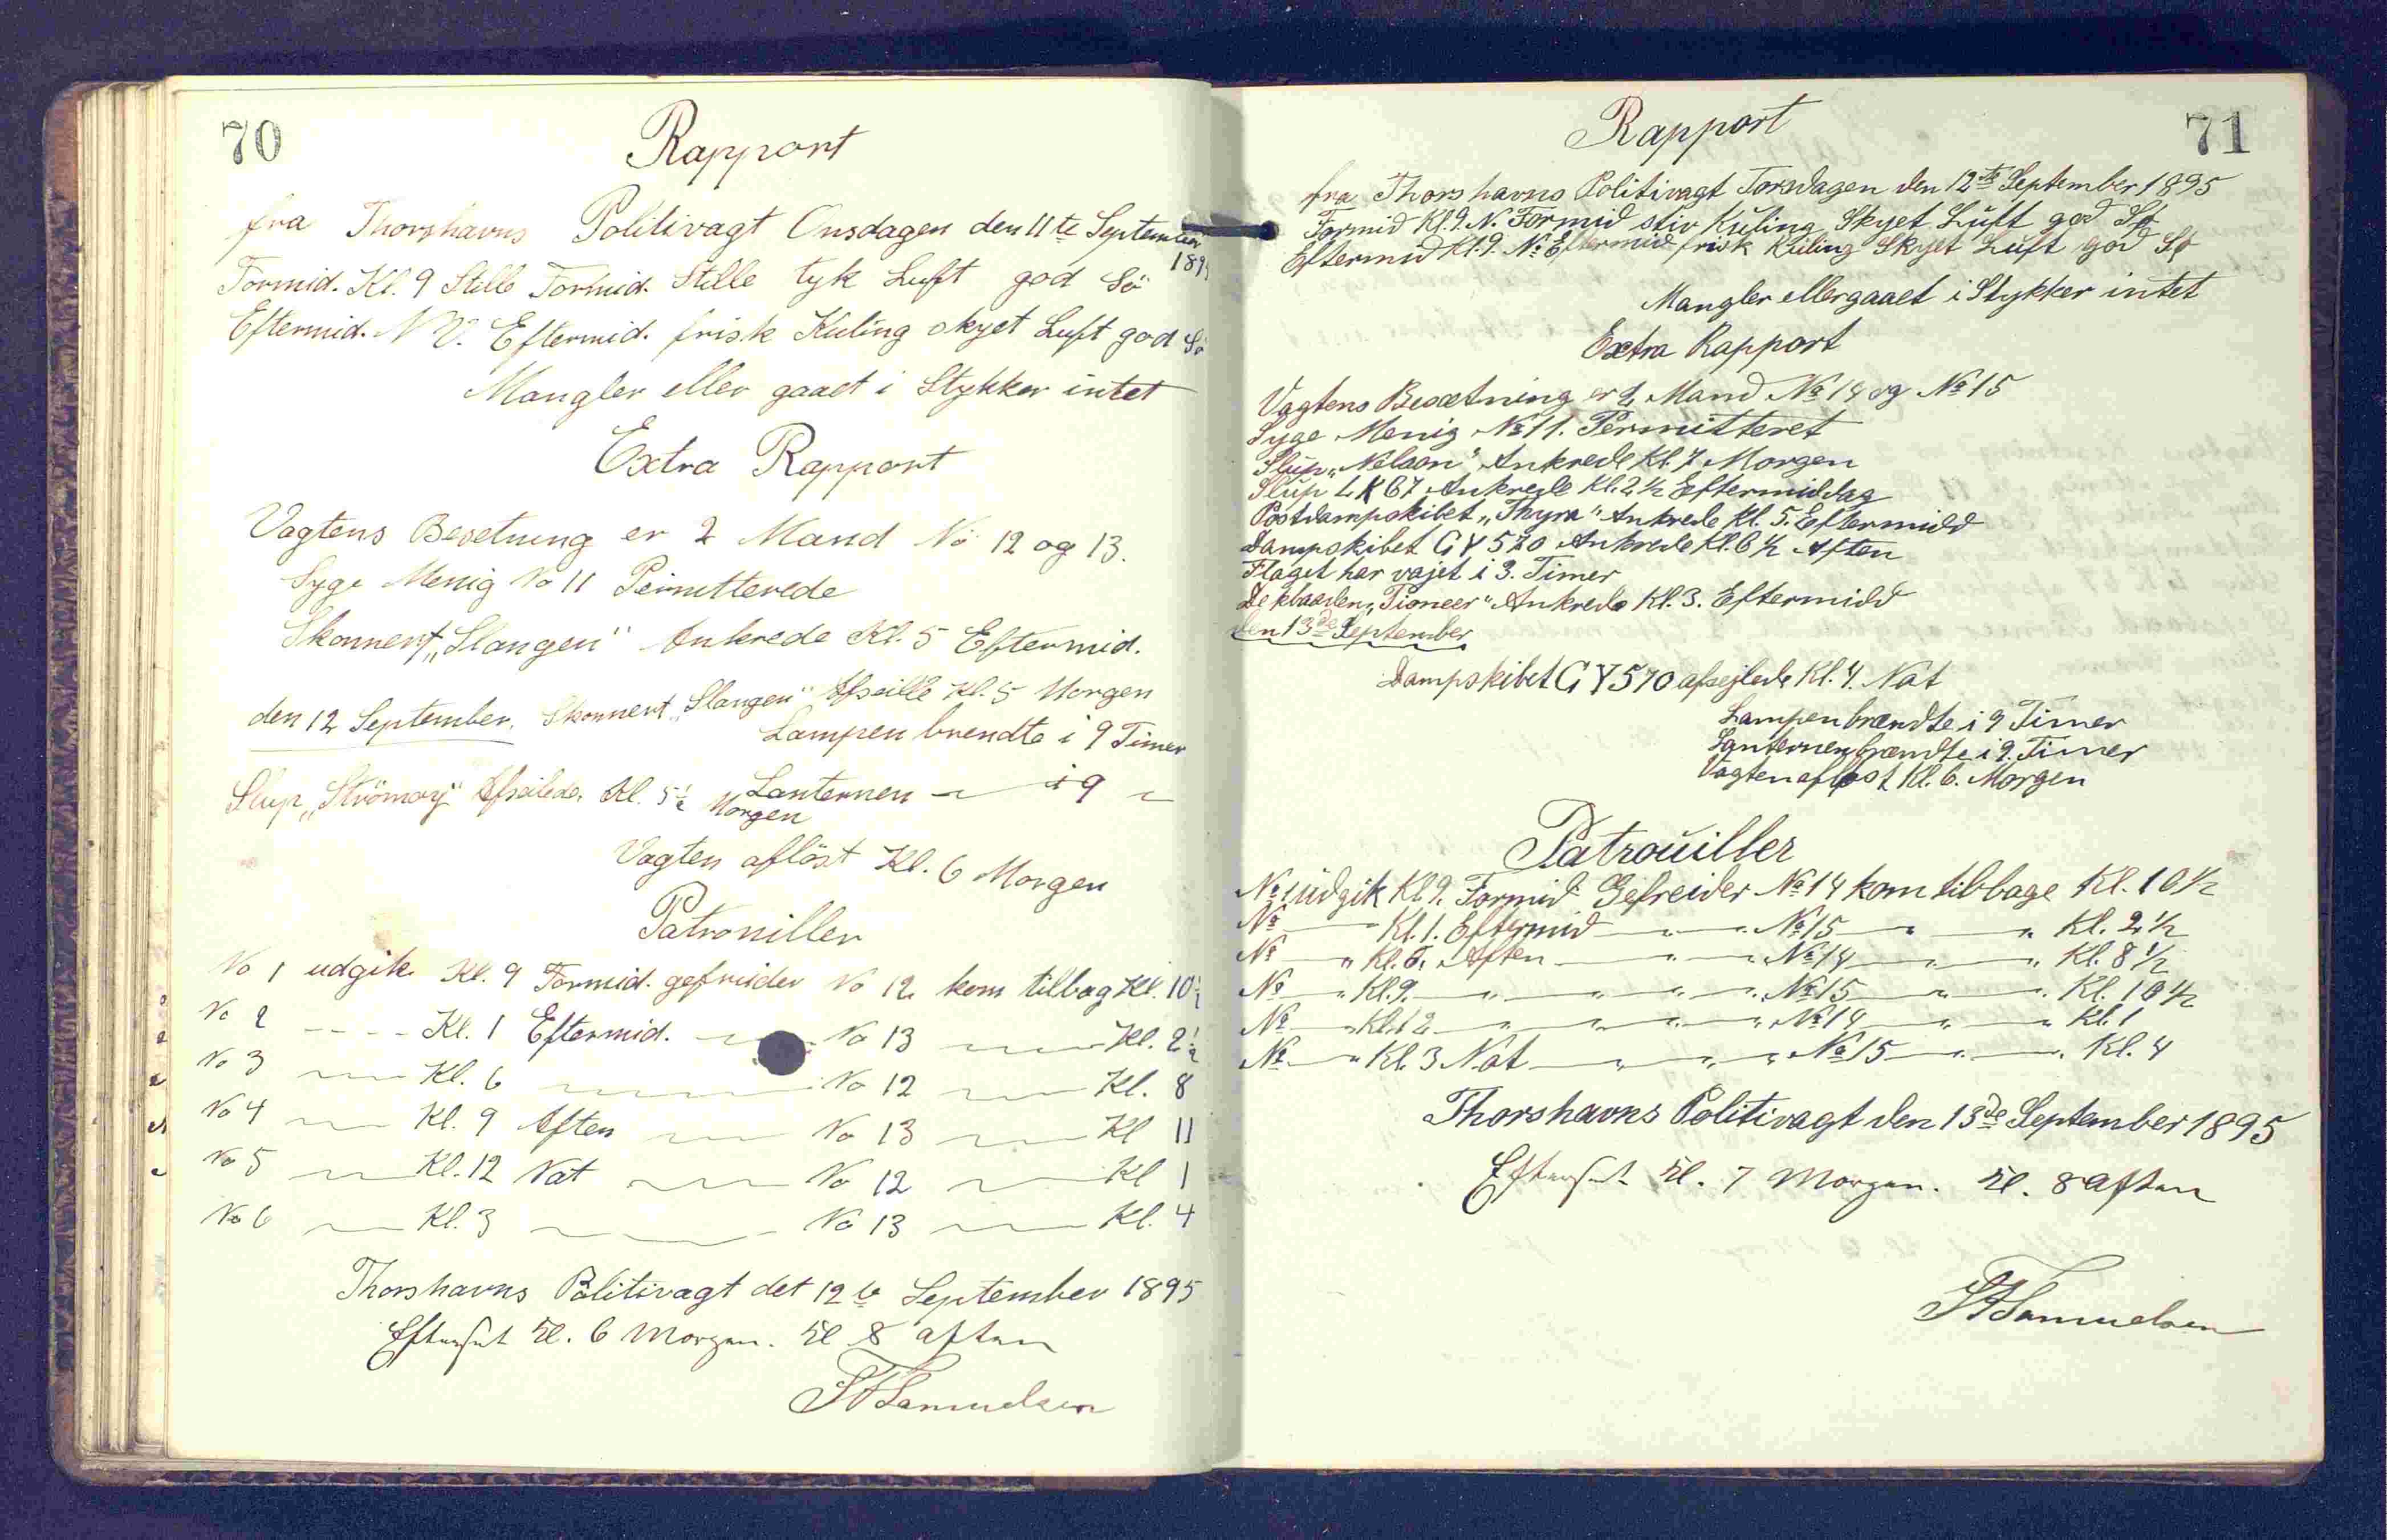 70
Rapport
fra Thorshavns Politivagt Onsdagen den 11te September
189
Formid. Kl. 9 Stille Formid. Stille tyk Luft god Sö
Eftermid. N V. Eftermid. frisk Kuling skyet Luft god Sö
Mangler eller gaaet i Stykker intet
Extra Rapport
Vagtens Besetning er 2 Mand No 12 og 13.
Syge Menig No 11 Permitterede
Skonnert „Slangen" Ankrede Kl. 5 Eftermid.
den 12 September. Skonnert „Slangen" Afseille Kl. 5 Morgen
Lampen brendte i 9 Timer
Slup „Strömoy" Afseilede. Kl. 5½ Morgen
Lanternen — i 9 —
Vagten aflöst Kl. 6 Morgen
Patrouiller
No 1 udgik Kl. 9 Formid. gefreider No 12 kom tilbag Kl. 10½
No 2 ---- Kl. 1 Eftermid. — No 13 — Kl. 2½
No 3 — Kl. 6 — No 12 — Kl. 8
No 4 — Kl. 9 Aften — No 13 — Kl 11
No 5 — Kl. 12 Nat — No 12 — Kl 1
No 6 — Kl. 3 — No 13 — Kl. 4
Thorshavns Politivagt det 12te September 1895
Efterset Kl. 6 Morgen. Kl 8 aften
Samuelsen
71
Rapport
fra Thorshavns Politivagt Torsdagen den 12te September 1895
Formid Kl. 9. N. Formid stiv Kuling Skyet Luft god Sø
Eftermid Kl. 9. N. Eftermid frisk Kuling Skyet Luft god Sø
Mangler eller gaaet i Stykker intet
Extra Rapport
Vagtens Besætning er 2 Mand No 14 og No 15
Syge Menig No 11. Permitteret
Slup „Nelson" Ankrede Kl. 7 Morgen
Slup LK 67 Ankrede Kl. 2½ Eftermiddag
Postdampskibet „Thyra" Ankrede Kl. 5. Eftermidd
Dampskibet GY 570 Ankrede Kl. 6½ Aften
Flaget har vajet i 3. Timer
„Pioneer" Ankrede Kl. 3. Eftermidd
den 13de September
Dampskibet GY 570 afsejlede Kl. 4. Nat
Lampen brændte i 9 Timer
Lanternen brændte i 9. Timer
Vagten afløst Kl. 6. Morgen
Patrouiller
No 1 udgik Kl. 9. Formid Gefreider No 14 kom tilbage Kl. 10½
No — Kl. 1. Eftermid — „ — No 15 — „ — „ Kl. 2½
No — „ Kl. 6. Aften — „ — No 14 — „ — „ Kl. 8½
No — „ Kl. 9. — „ — „ — No 15 — „ — „ Kl. 10½
No — „ Kl. 12 — „ — „ — No 14 — „ — „ Kl. 1
No — „ Kl. 3 Nat — „ — „ — No 15 — „ — „ Kl. 4
Thorshavns Politivagt den 13de September 1895
Efterset Kl. 7 Morgen. Kl. 8 aften
Samuelsen